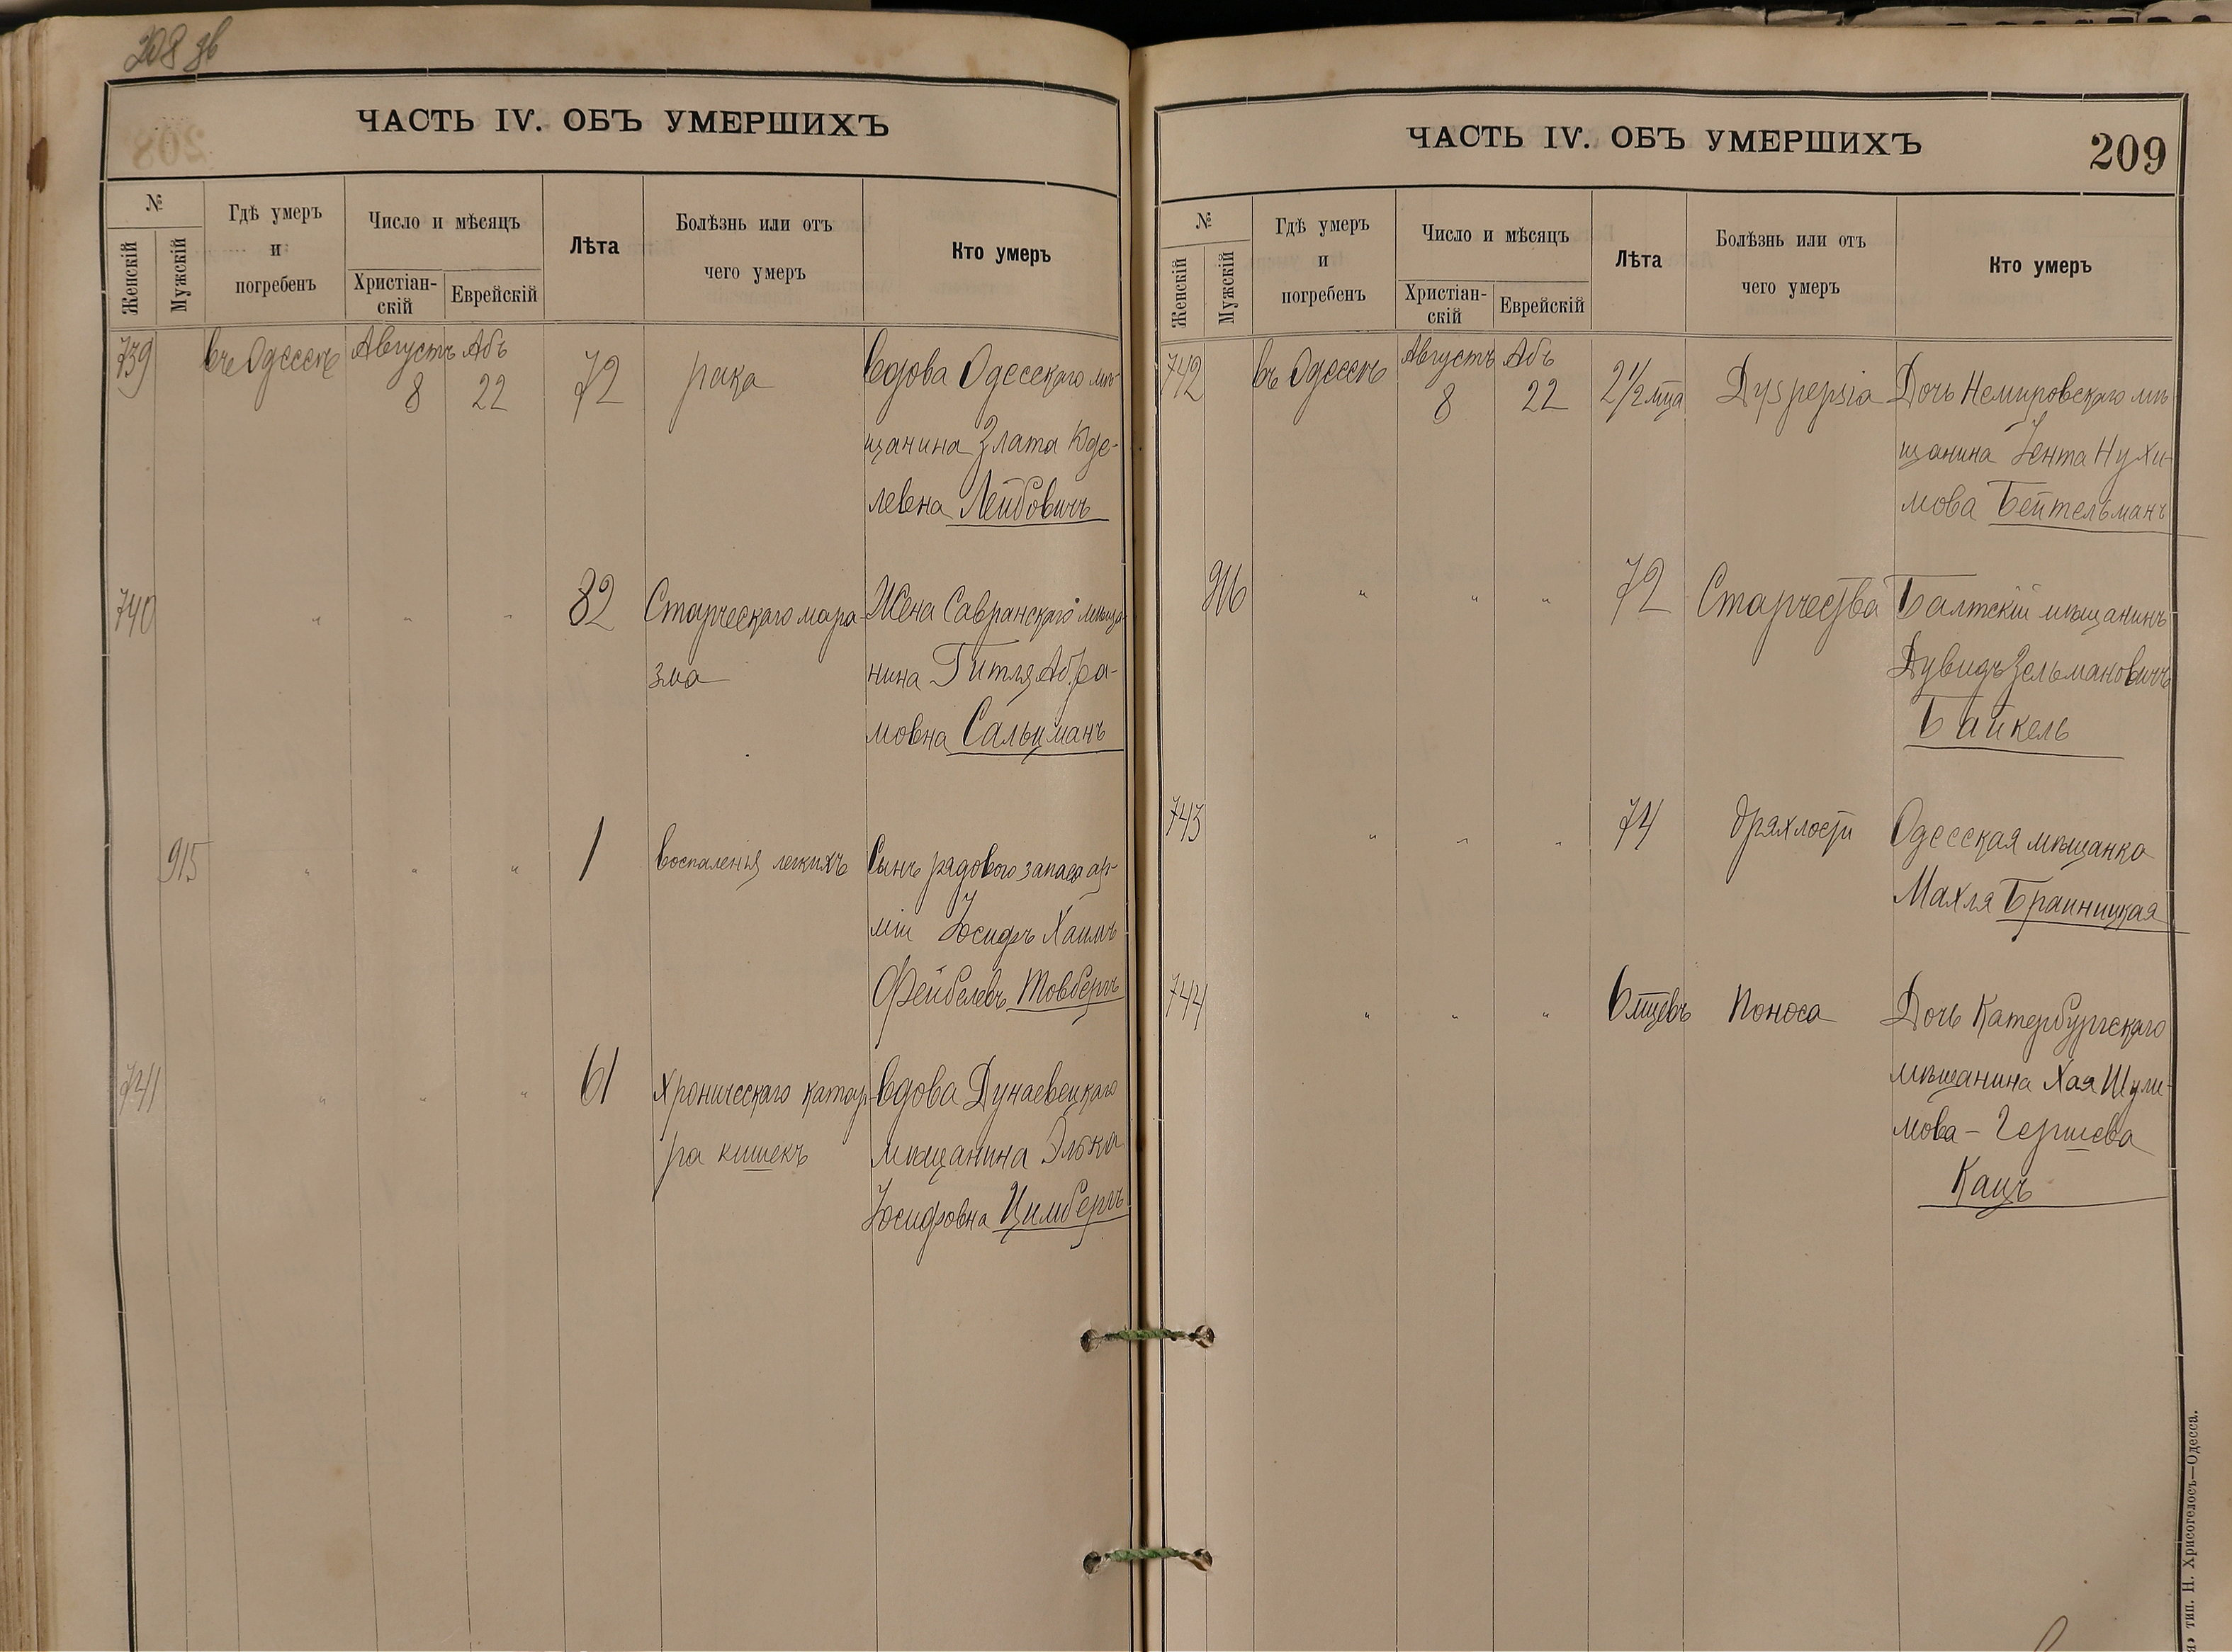 208 зв
ЧАСТЬ IV. ОБЪ УМЕРШИХЪ
№
Женскій
Мужскій
Гдѣ умеръ
и
погребенъ
Число и мѣсяцъ
Христіан-
скій
Еврейскій
Лѣта
Болѣзнь или отъ
чего умеръ
Кто умеръ
739 въ Одессѣ Августъ 8 Абъ 22 72 рака Вдова Одесскаго мѣ-
щанина Злата Юде-
левна Лейбовичъ
740 " " " 82 Старческаго мара- Жена Савранскаго мѣща-
зма нина Гитля Абра-
мовна Сальцманъ
915 " " " 1 Воспаленія легкихъ Сынъ рядового запаса ар-
міи Іосифъ Хаимъ
Фейбелевъ Товбергъ
741 " " " 61 Хроническаго катар- Вдова Дунаевецкаго
ра кишекъ мѣщанина Элька
Іосифовна Цимбергъ
ЧАСТЬ IV. ОБЪ УМЕРШИХЪ
209
№
Женскій
Мужскій
Гдѣ умеръ
и
погребенъ
Число и мѣсяцъ
Христіан-
скій
Еврейскій
Лѣта
Болѣзнь или отъ
чего умеръ
Кто умеръ
742 въ Одессѣ Августъ 8 Абъ 22 2 1/2 мца Dyspepsia Дочь Немировскаго мѣ-
щанина Іента Нухи-
мова Бейтельманъ
916 " " " 72 Старчества Балтскій мѣщанинъ
Дувидъ Зельмановичъ
Байкель
743 " " " 74 дряхлости Одесская мѣщанка
Махля Браиницкая
744 " " " 6 мцевъ Поноса Дочь Катербургскаго
мѣщанина Хая Шули-
мова-Гершева
Кацъ
тип. Н. Хрисогелосъ—Одесса.